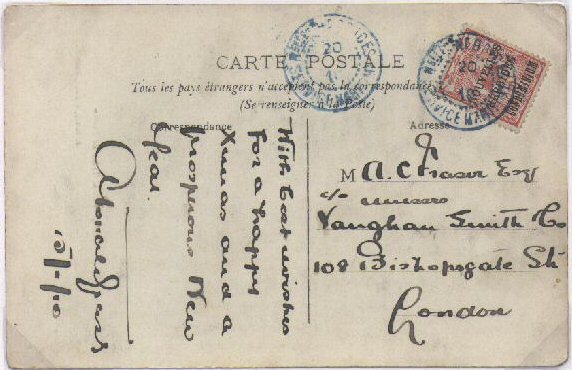 CARTE POSTALE
Tous les pays étrangers n'acceptent pas la correspondance
(Se renseigner à la Poste)
Correspondance
Adresse
With best wishes
For a happy
Xmas and a
prosperous New
Year
M A. C. Fraser Esq
c/o Messrs
Vaughan Smith & Co
108 Bishopsgate St
London
20
20